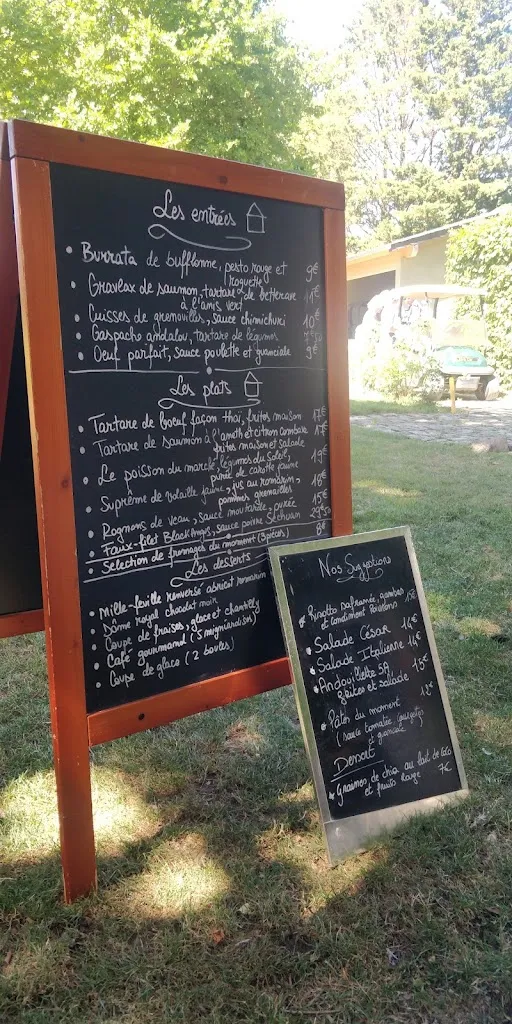 Les entrées
• Burrata de bufflonne, pesto rouge et
roquette 9€
• Gravlax de saumon, tartare de betterave
à l'anis vert 11€
• Cuisses de grenouilles, sauce chimichuri 10€
• Gaspacho andalou, tartare de légumes 7€50
• Oeuf parfait, sauce poulette et guanciale 9€
Les plats
• Tartare de bœuf façon thaï, frites maison 17€
• Tartare de saumon à l'aneth et citron combawa 17€
frites maison et salade
• Le poisson du marché, légumes du Soleil, 19€
purée de carotte jaune
• Suprême de volaille jaune, jus au romarin, 18€
pommes grenailles
• Rognons de veau, sauce moutarde, purée 15€
• Faux-filet Black Angus, sauce poivre Sechuan 29€50
• Selection de fromages du moment (3 pièces) 8€
Les desserts
• Mille-feuille renversé abricot romarin
• Dôme royal chocolat noir
• Coupe de fraises, glace et chantilly
• Café gourmand (5 mignardises)
• Coupe de glace (2 boules)
Nos Suggestions
Risotto safrané, gambas 15€
et condiment
Salade César 14€
Salade Italienne 14€
Andouillette 5A 15€
frites et salade
Pâtes du moment 12€
(sauce tomatée, courgettes
et guanciale)
Dessert
Graines de chia au lait de coco
et fruits rouge 7€